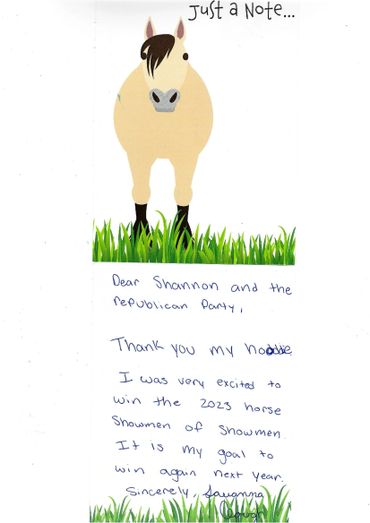 Just a Note...
Dear Shannon and the
republican Party,
Thank you my
I was very excited to
win the 2023 horse
Showmen of Showmen.
It is my goal to
win again next year.
Sincerely, Savanna